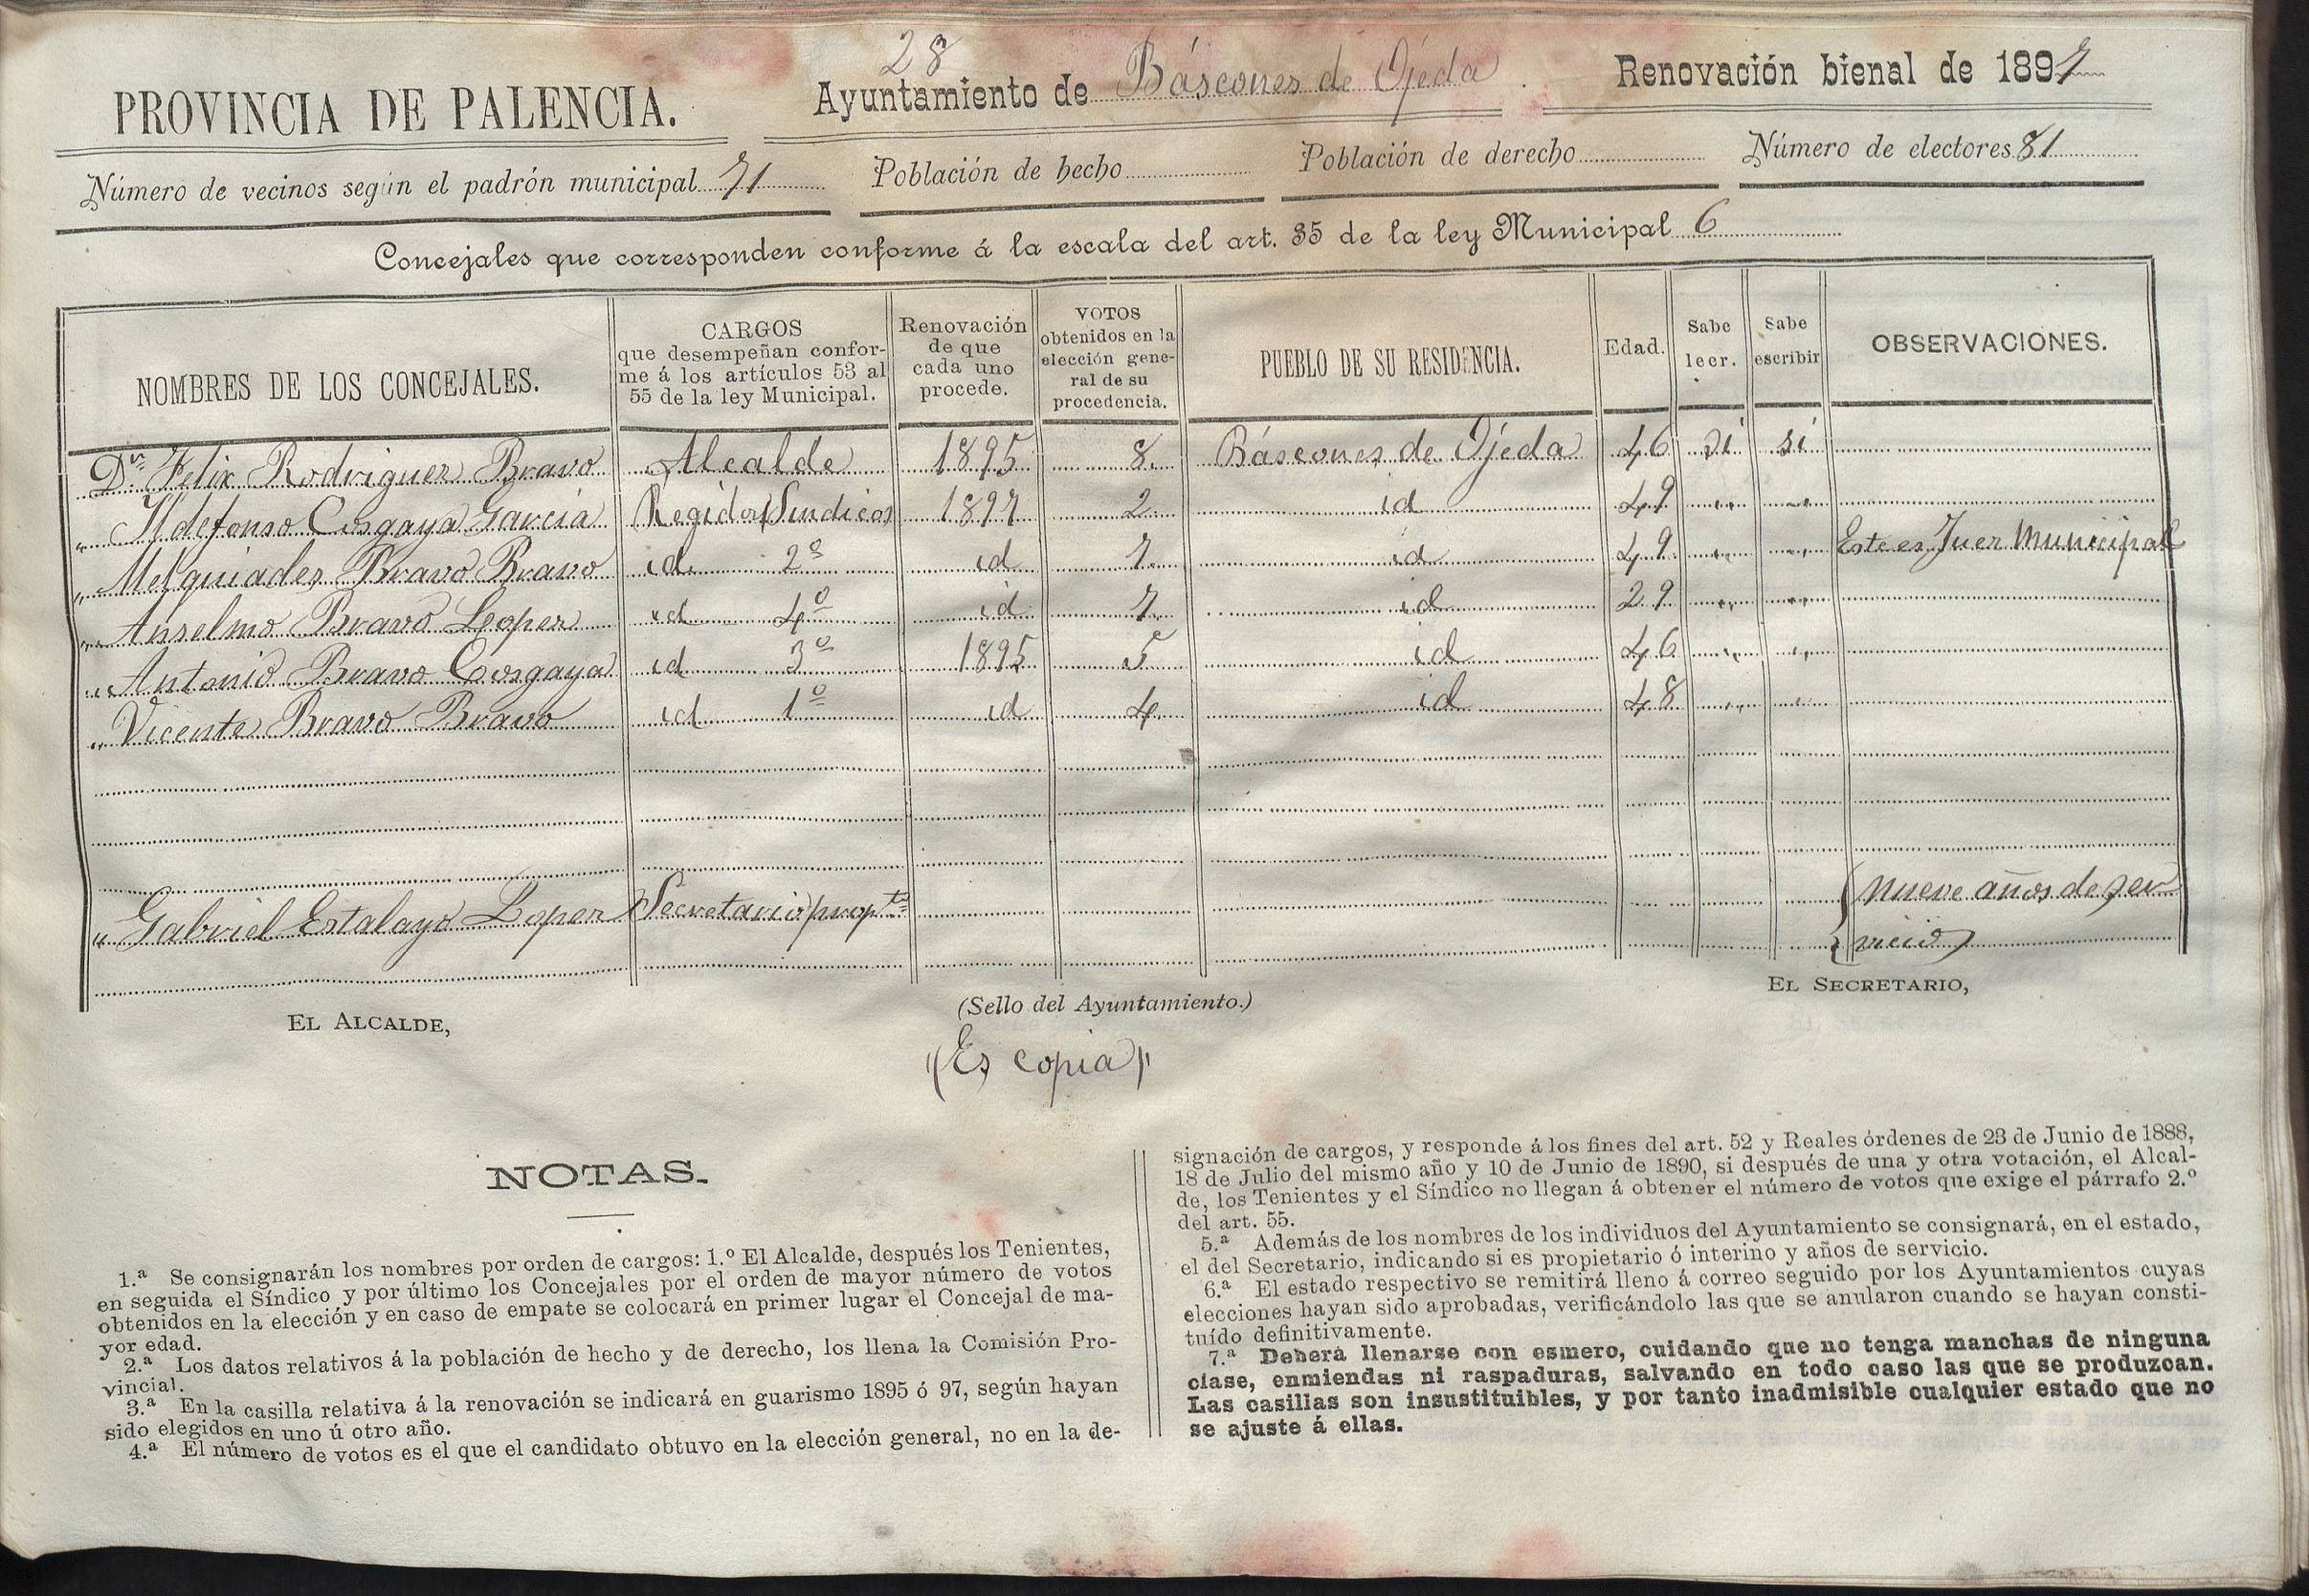 28
PROVINCIA DE PALENCIA. Ayuntamiento de Báscones de Ojeda Renovación bienal de 1897
Número de vecinos según el padrón municipal 71 Población de hecho Población de derecho Número de electores 81
Concejales que corresponden conforme á la escala del art. 35 de la ley Municipal 6
NOMBRES DE LOS CONCEJALES.
CARGOS
que desempeñan confor-
me á los artículos 53 al
55 de la ley Municipal.
Renovación
de que
cada uno
procede.
VOTOS
obtenidos en la
elección gene-
ral de su
procedencia.
PUEBLO DE SU RESIDENCIA.
Edad.
Sabe
leer.
Sabe
escribir
OBSERVACIONES.
Dn. Felix Rodriguez Bravo Alcalde 1895 8 Báscones de Ojeda 46 si si
" Ildefonso Cosgaya Garcia Regidor Sindico 1897 2 id 49 " "
" Melquiades Bravo Bravo id 2º id 7 id 49 " " Este es Juez Municipal
" Anselmo Bravo Lopez id 4º id 7 id 29 " "
" Antonio Bravo Cosgaya id 3º 1895 5 id 46 " "
" Vicente Bravo Bravo id 1º id 4 id 48 " "
" Gabriel Estalayo Lopez Secretario propto (Nueve años de ser
vicio)
EL ALCALDE,
(Sello del Ayuntamiento.)
EL SECRETARIO,
"(Es copia)"
NOTAS.
1.ª Se consignarán los nombres por orden de cargos: 1.º El Alcalde, después los Tenientes,
en seguida el Síndico y por último los Concejales por el orden de mayor número de votos
obtenidos en la elección y en caso de empate se colocará en primer lugar el Concejal de ma-
yor edad.
2.ª Los datos relativos á la población de hecho y de derecho, los llena la Comisión Pro-
vincial.
3.ª En la casilla relativa á la renovación se indicará en guarismo 1895 ó 97, según hayan
sido elegidos en uno ú otro año.
4.ª El número de votos es el que el candidato obtuvo en la elección general, no en la de-
signación de cargos, y responde á los fines del art. 52 y Reales órdenes de 23 de Junio de 1888,
18 de Julio del mismo año y 10 de Junio de 1890, si después de una y otra votación, el Alcal-
de, los Tenientes y el Síndico no llegan á obtener el número de votos que exige el párrafo 2.º
del art. 55.
5.ª Además de los nombres de los individuos del Ayuntamiento se consignará, en el estado,
el del Secretario, indicando si es propietario ó interino y años de servicio.
6.ª El estado respectivo se remitirá lleno á correo seguido por los Ayuntamientos cuyas
elecciones hayan sido aprobadas, verificándolo las que se anularon cuando se hayan consti-
tuído definitivamente.
7.ª Deberá llenarse con esmero, cuidando que no tenga manchas de ninguna
clase, enmiendas ni raspaduras, salvando en todo caso las que se produzcan.
Las casillas son insustituibles, y por tanto inadmisible cualquier estado que no
se ajuste á ellas.